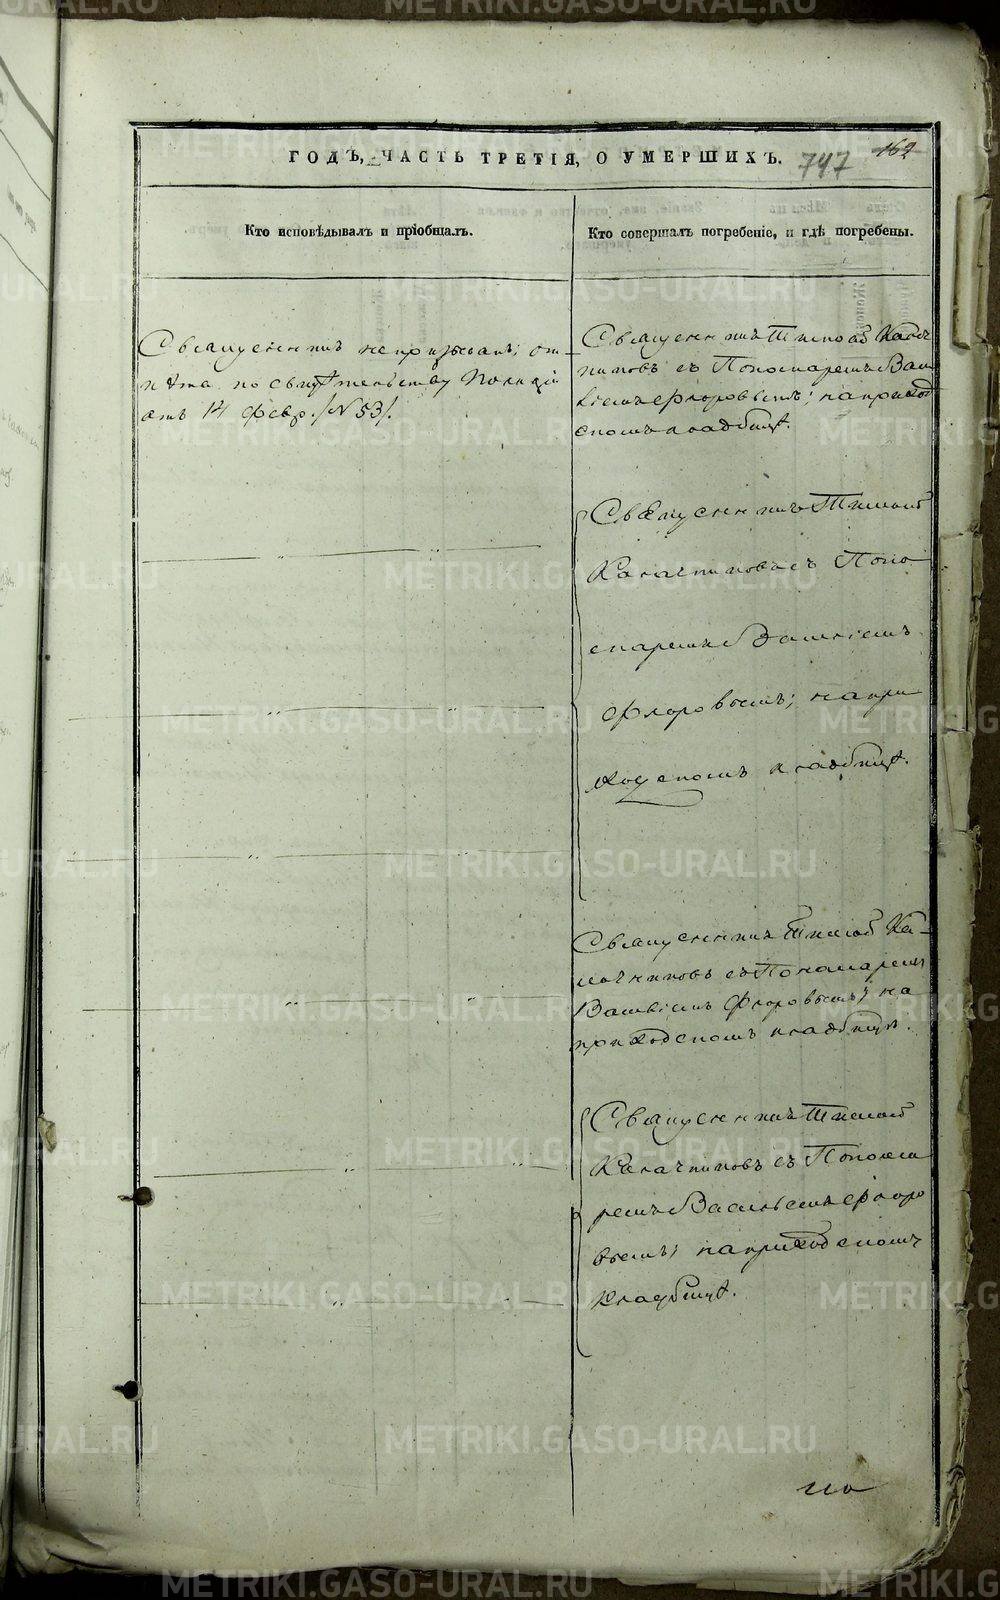 ГОДЪ, ЧАСТЬ ТРЕТІЯ, О УМЕРШИХЪ.
747
162
Кто исповѣдывалъ и пріобщалъ.
Кто совершалъ погребеніе, и гдѣ погребены.
Священникъ не призванъ; от-
пѣта по свидѣтельству Полиціи
отъ 14 Февр. /N 53/.
Священникъ Тимофей Калач
никовъ съ Пономаремъ Васи
ліемъ Флоровымъ; на приход
скомъ кладбищѣ.
Священникъ Тимофей
Калачниковъ съ Поно
маремъ Василіемъ
Флоровымъ; на при
ходскомъ кладбищѣ.
Священникъ Тимофей Ка-
лачниковъ съ Пономаремъ
Василіемъ Флоровымъ; на
приходскомъ кладбищѣ.
Священникъ Тимофей
Калачниковъ съ Понома
ремъ Васильемъ Флоро
вымъ; на приходскомъ
кладбищѣ.
METRIKI.GASO-URAL.RU